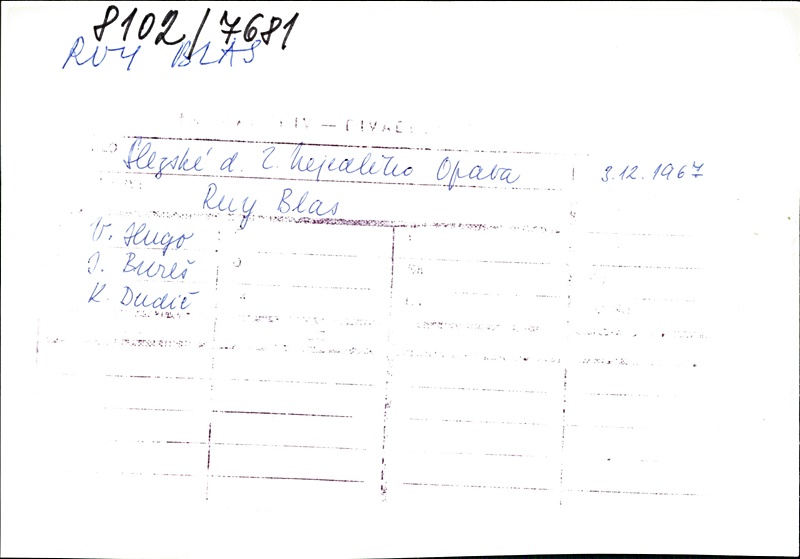 8102/7681
RUY BLAS
Slezské d. Z. Nejedlého Opava 3.12.1967
Ruy Blas
V. Hugo
J. Bureš
K. Dudič